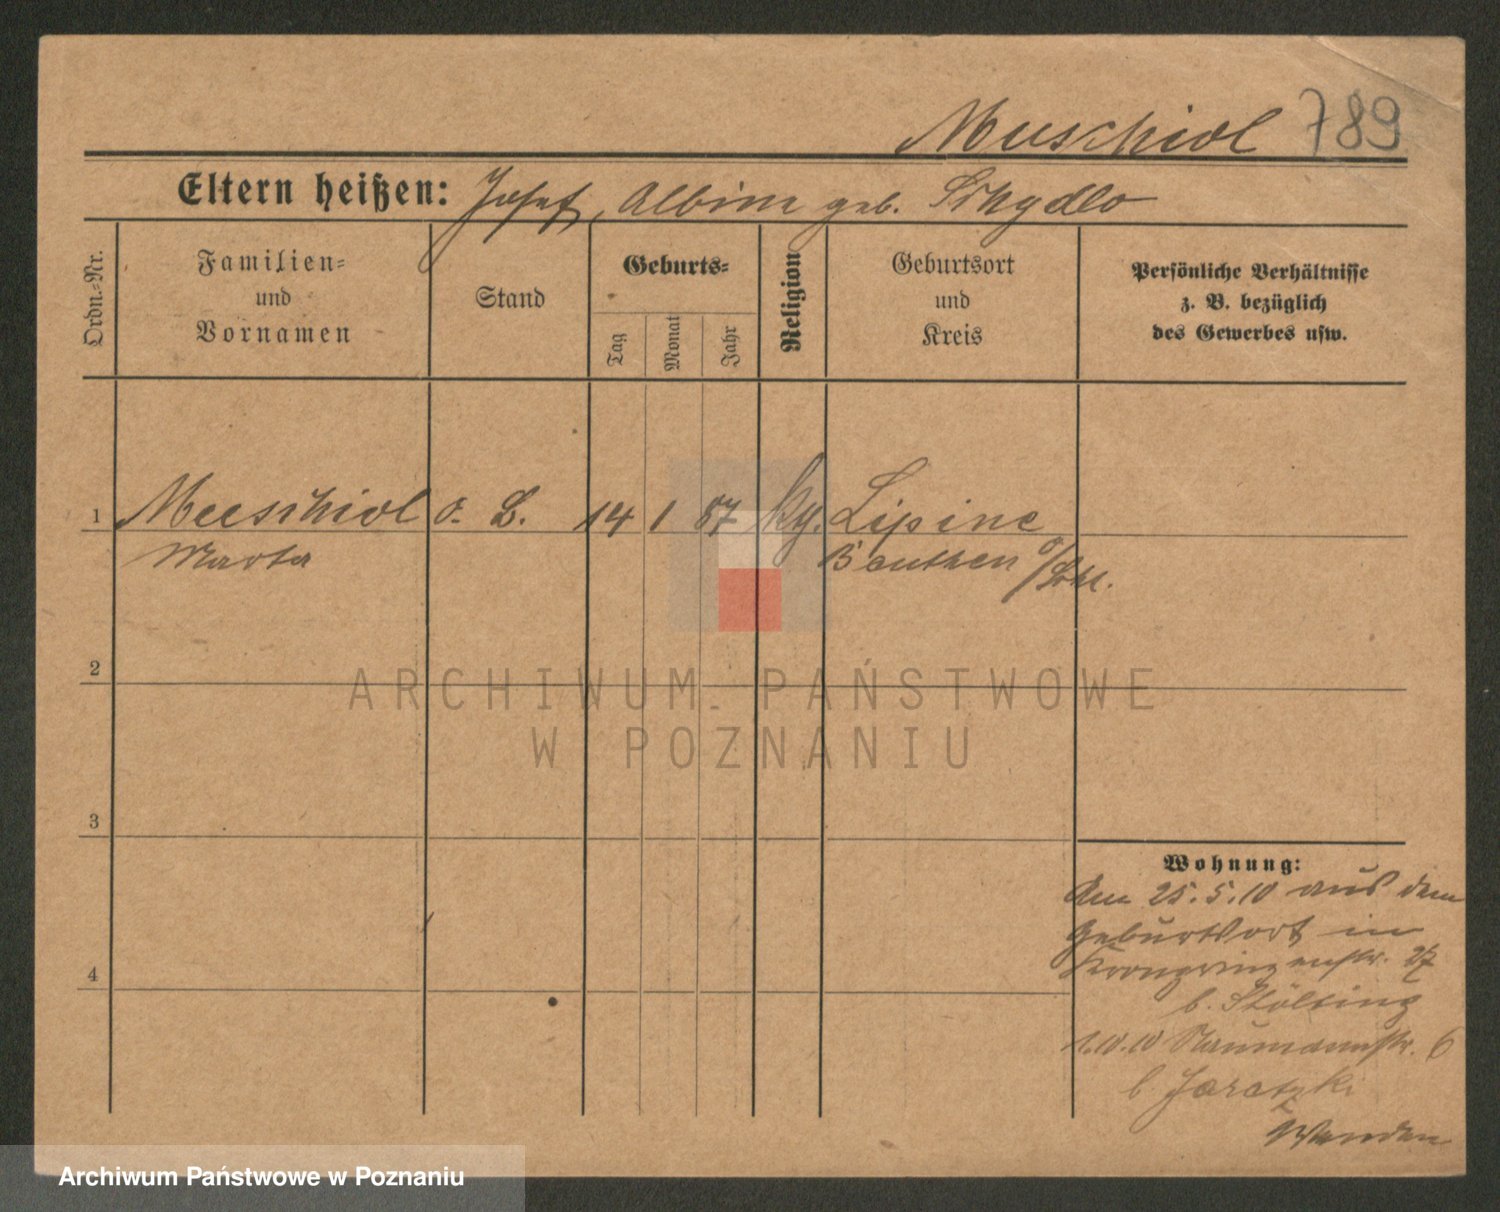 Muschiol 789
Eltern heißen: Josef, Albine geb. Schydlo
Ordn.-Nr.
Familien-
und
Vornamen
Stand
Geburts-
Tag
Monat
Jahr
Religion
Geburtsort
und
Kreis
Persönliche Verhältnisse
z. B. bezüglich
des Gewerbes usw.
1 Muschiol o. B. 14 1 87 kg. Lipine
Marta Beuthen o/Schl.
2
3
4
Wohnung:
Am 25.5.10 aus dem
Geburtsort in
Kronprinzenstr. 27
b. Stölting
1.10.10 Naumannstr. 6
b Jaratzki
Wenden
ARCHIWUM PAŃSTWOWE
W POZNANIU
Archiwum Państwowe w Poznaniu